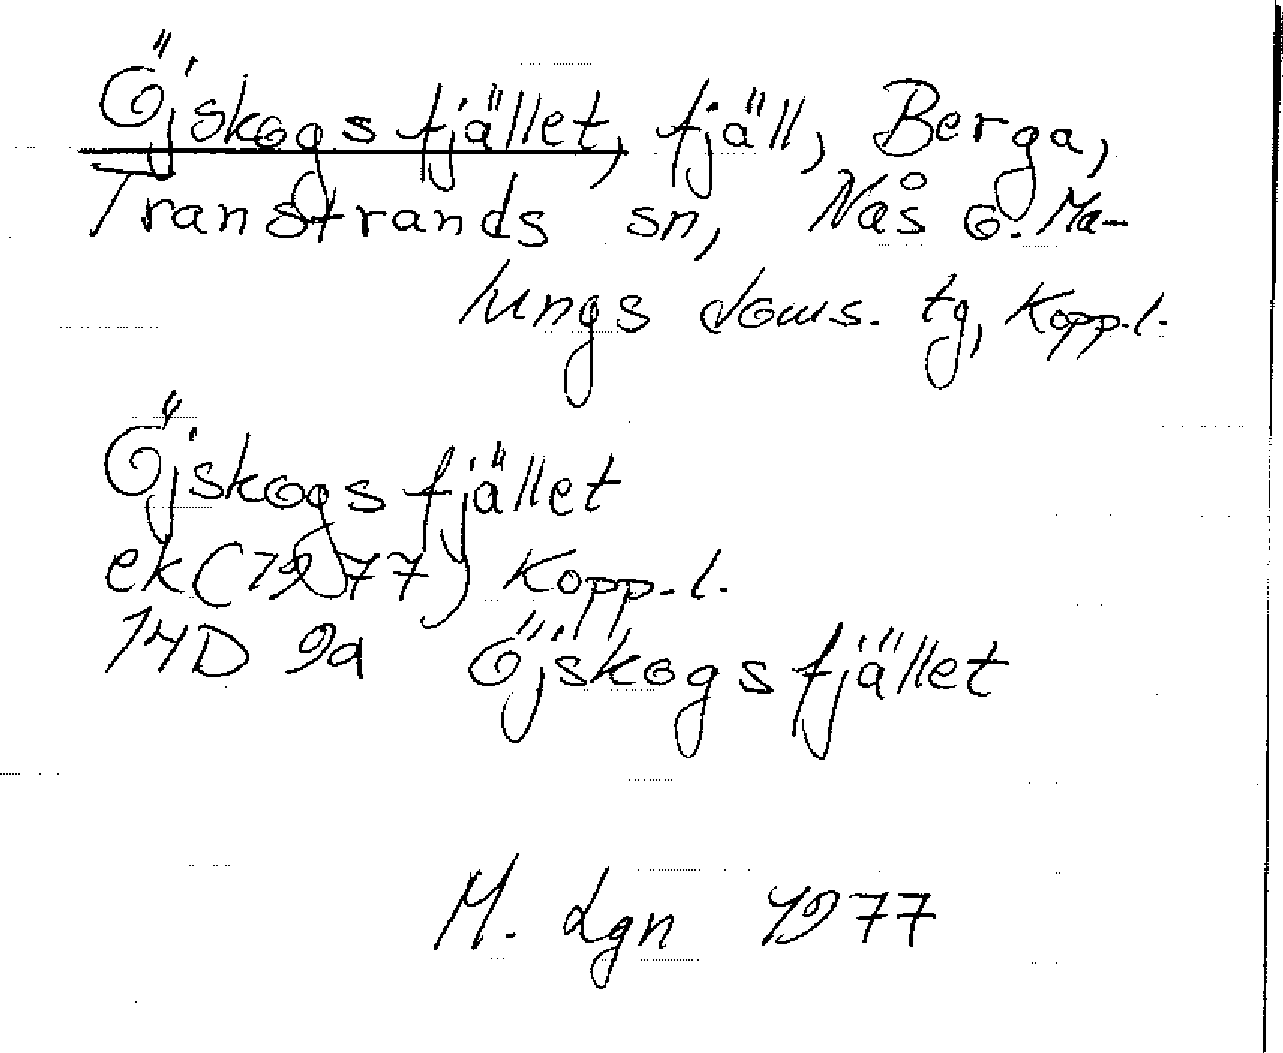 Öjskogsfjället, fjäll, Berga,
Transtrands sn, Nås o. Ma-
lungs doms. tg, Kopp.l.
Öjskogsfjället
ek (1977) Kopp.l.
14D 9a Öjskogsfjället
M. Lgn 1977